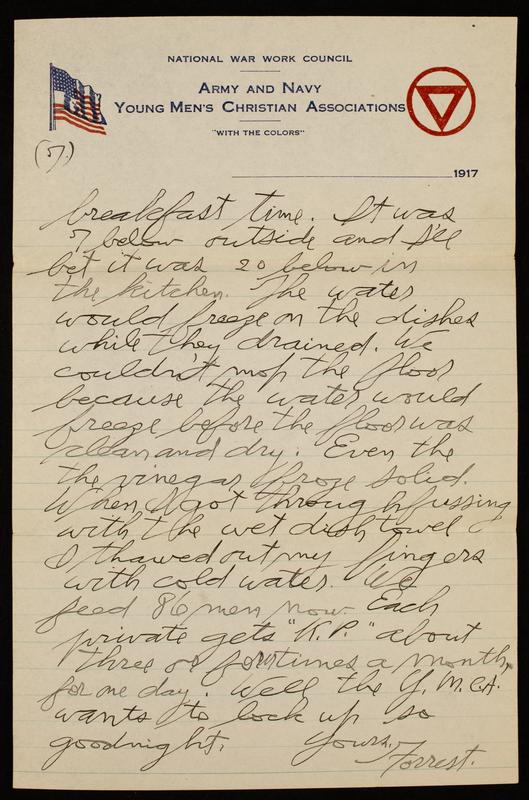 NATIONAL WAR WORK COUNCIL
ARMY AND NAVY
YOUNG MEN'S CHRISTIAN ASSOCIATIONS
"WITH THE COLORS"
(5.)
1917
breakfast time. It was
5 below outside and I'll
bet it was 20 below in
the kitchen. The water
would freeze on the dishes
while they drained. We
couldn't mop the floor
because the water would
freeze before the floor was
clean and dry. Even the
the vinegar froze solid.
When I got through fussing
with the wet dish towel
I thawed out my fingers
with cold water. We
feed 86 men now. Each
private gets "K.P." about
three or four times a month,
for one day. Well the Y.M.C.A.
wants to lock up so
goodnight. Yours,
Forrest.